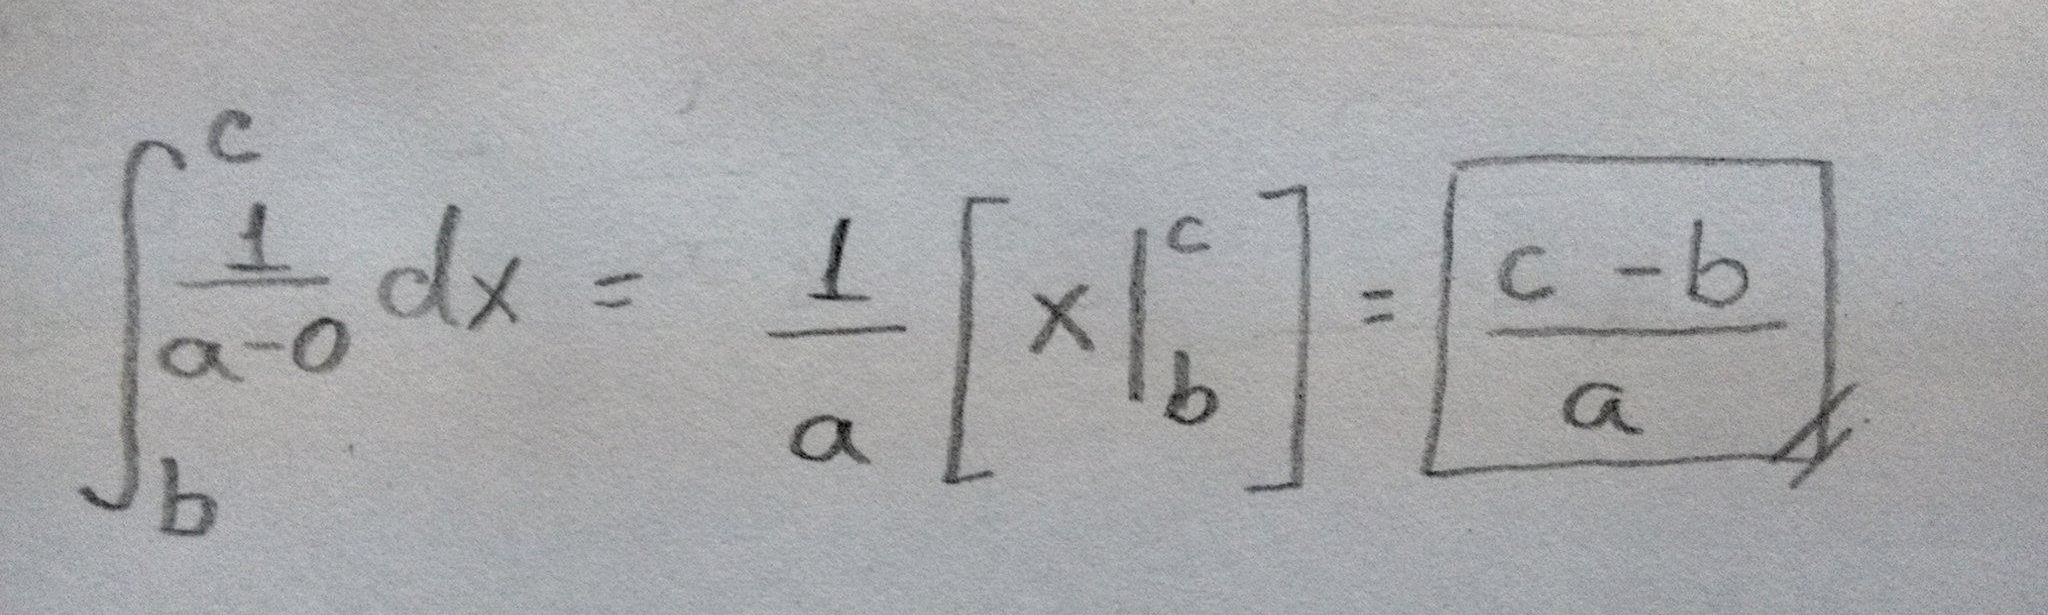 ∫_b^c 1/(a-0) dx = 1/a [x|_b^c] = (c-b)/a